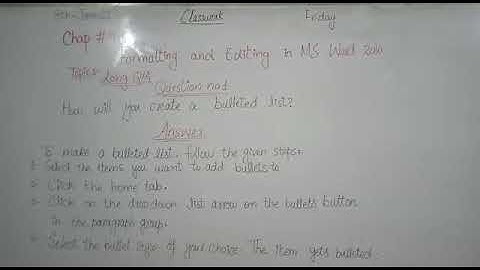 Classwork Friday
Chap #
Formatting and Editing in MS Word 2010
Topic:- Long Q/A
Question no1
How will you create a bulleted list?
Answer
To make a bulleted list, follow the given steps:
Select the items you want to add bullets to
Click the home tab.
Click on the dropdown list arrow on the bullets button
in the paragraph group.
Select the bullet style of your choice. The item gets bulleted.